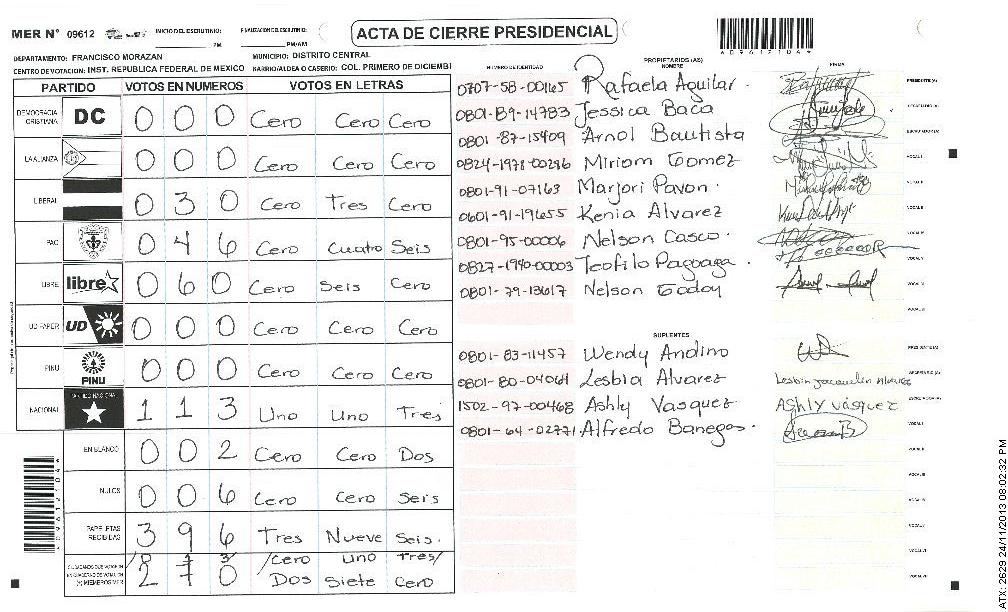 MER N° 09612 INICIO DEL ESCRUTINIO: PM FINALIZACION DEL ESCRUTINIO: PM/AM
ACTA DE CIERRE PRESIDENCIAL
*09612104*
DEPARTAMENTO: FRANCISCO MORAZAN MUNICIPIO: DISTRITO CENTRAL
CENTRO DE VOTACION: INST. REPUBLICA FEDERAL DE MEXICO BARRIO/ALDEA O CASERIO: COL. PRIMERO DE DICIEMBR
PARTIDO VOTOS EN NUMEROS VOTOS EN LETRAS
DEMOCRACIA CRISTIANA DC 0 0 0 Cero Cero Cero
LA ALIANZA 0 0 0 Cero Cero Cero
LIBERAL 0 3 0 Cero Tres Cero
PAC 0 4 6 Cero Cuatro Seis
LIBRE libre 0 6 0 Cero Seis Cero
UD FAPER UD 0 0 0 Cero Cero Cero
PINU PINU 0 0 0 Cero Cero Cero
NACIONAL PARTIDO NACIONAL 1 1 3 Uno Uno Tres
EN BLANCO 0 0 2 Cero Cero Dos
NULOS 0 0 6 Cero Cero Seis
PAPELETAS RECIBIDAS 3 9 6 Tres Nueve Seis
/0 1 3/ /Cero Uno Tres/
CIUDADANOS QUE VOTARON EN CUADERNO DE VOTACION (+) MIEMBROS MER 2 7 0 Dos Siete Cero
NUMERO DE IDENTIDAD PROPIETARIOS (AS) NOMBRE FIRMA
0707-58-00165 Rafaela Aguilar. PRESIDENTE(A)
0801-89-14783 Jessica Baca SECRETARIO (A)
0801-87-15409 Arnol Bautista ESCRUTADOR(A)
0824-1978-00286 Miriam Gomez VOCAL I
0801-91-07163 Marjori Pavon. VOCAL II
0601-91-19655 Kenia Alvarez VOCAL III
0801-95-00006 Nelson Casco. VOCAL IV
0827-1940-00003 Teofilo Pagoaga. VOCAL V
0801-79-13617 Nelson Godoy VOCAL VI
VOCAL VII
SUPLENTES
0801-83-11457 Wendy Andino PRESIDENTE(A)
0801-80-04061 Lesbia Alvarez Lesbia Jacquelin Alvarez SECRETARIO (A)
1502-97-00468 Ashly Vasquez Ashly Vásquez ESCRUTADOR(A)
0801-64-02771 Alfredo Banegas. VOCAL I
VOCAL II
VOCAL III
VOCAL IV
VOCAL V
VOCAL VI
VOCAL VII
*09612104*
ATX: 2629 24/11/2013 08:02:32 PM